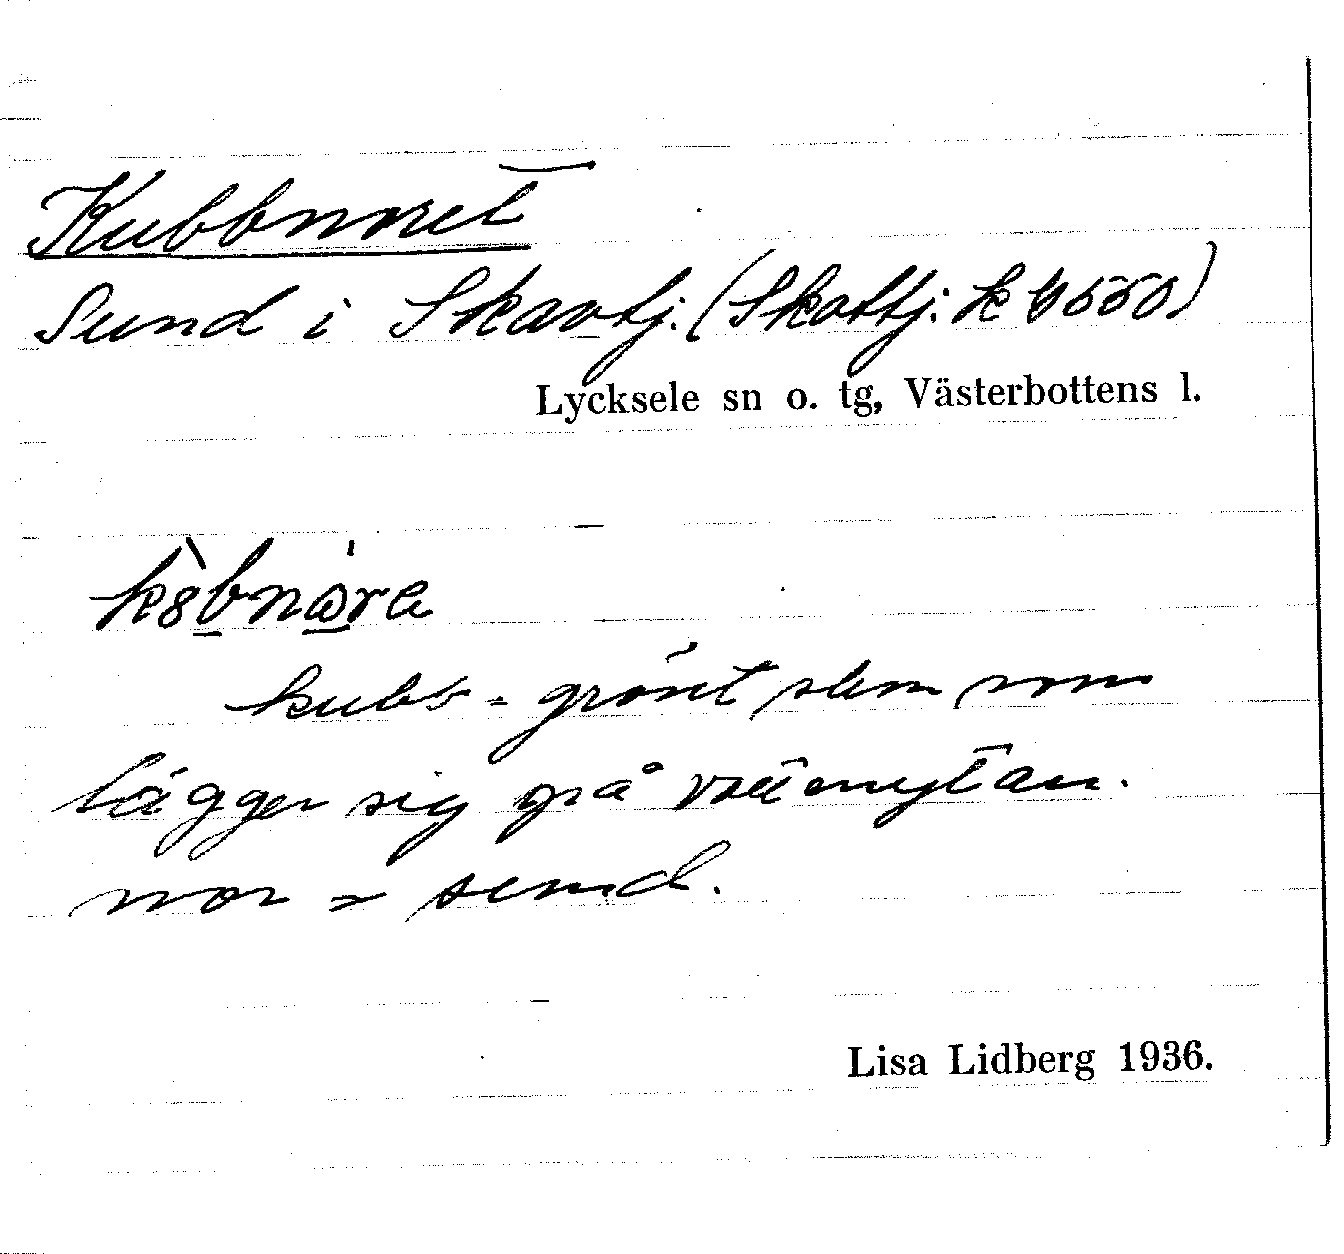 Kubbnoret
Sund i Skavtj. (Skattj. k 4550)
Lycksele sn o. tg, Västerbottens l.
kubb - grönt slem som
lägger sig på vattenytan.
nor = sund.
Lisa Lidberg 1936.